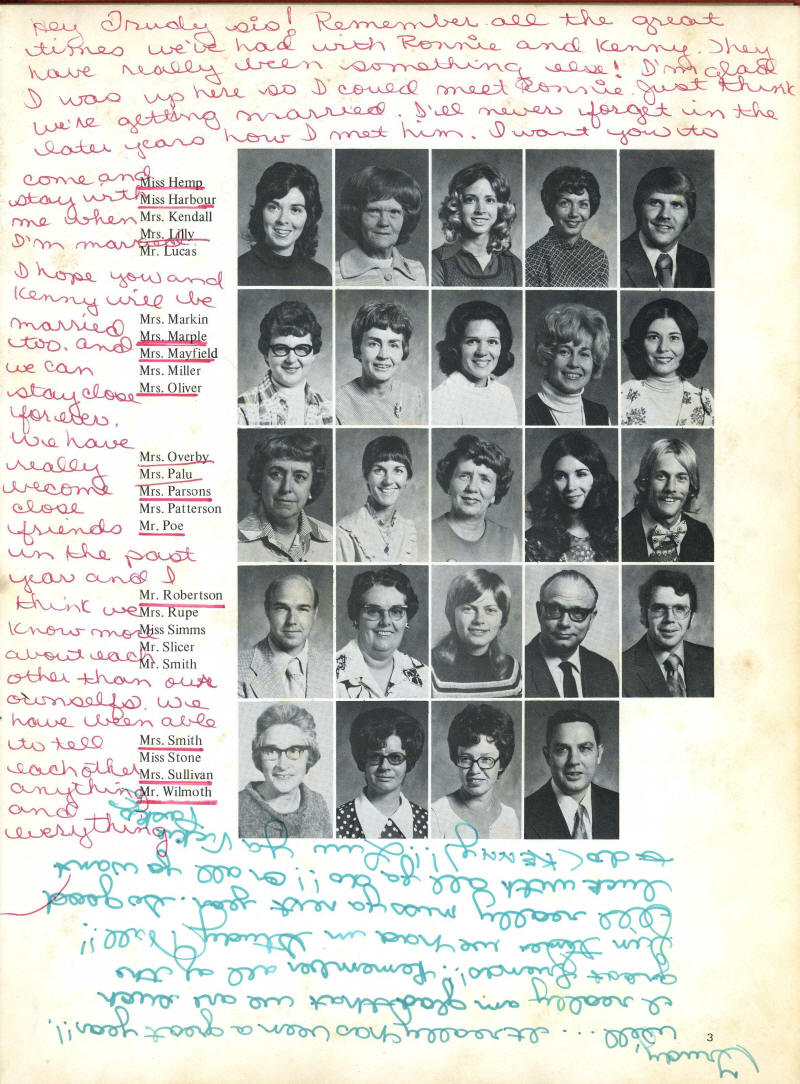 Hey Trudy sis! Remember all the great
times we've had with Ronnie and Kenny. They
have really been something else! I'm glad
I was up here so I could meet Ronnie. Just think
we're getting married. I'll never forget in the
later years how I met him. I want you to
come and
stay with
me when
I'm married.
I hope you and
Kenny will be
married
too. and
we can
stay close
forever.
We have
really
become
close
friends
in the past
year and I
think we
know more
about each
other than our
ownselfs. We
have been able
to tell
each other
anything
and
everything
Miss Hemp
Miss Harbour
Mrs. Kendall
Mrs. Lilly
Mr. Lucas
Mrs. Markin
Mrs. Marple
Mrs. Mayfield
Mrs. Miller
Mrs. Oliver
Mrs. Overby
Mrs. Palu
Mrs. Parsons
Mrs. Patterson
Mr. Poe
Mr. Robertson
Mrs. Rupe
Miss Simms
Mr. Slicer
Mr. Smith
Mrs. Smith
Miss Stone
Mrs. Sullivan
Mr. Wilmoth
3
Trudy,
Well... It really has been a great year!!
I really am glad that we are such
great friends! Remember all of the
fun times we had in Study Hall!!
I'll really miss ya next year. So good
luck with all ya do!! On all ya want
to do (KENNY)!! Luv ya